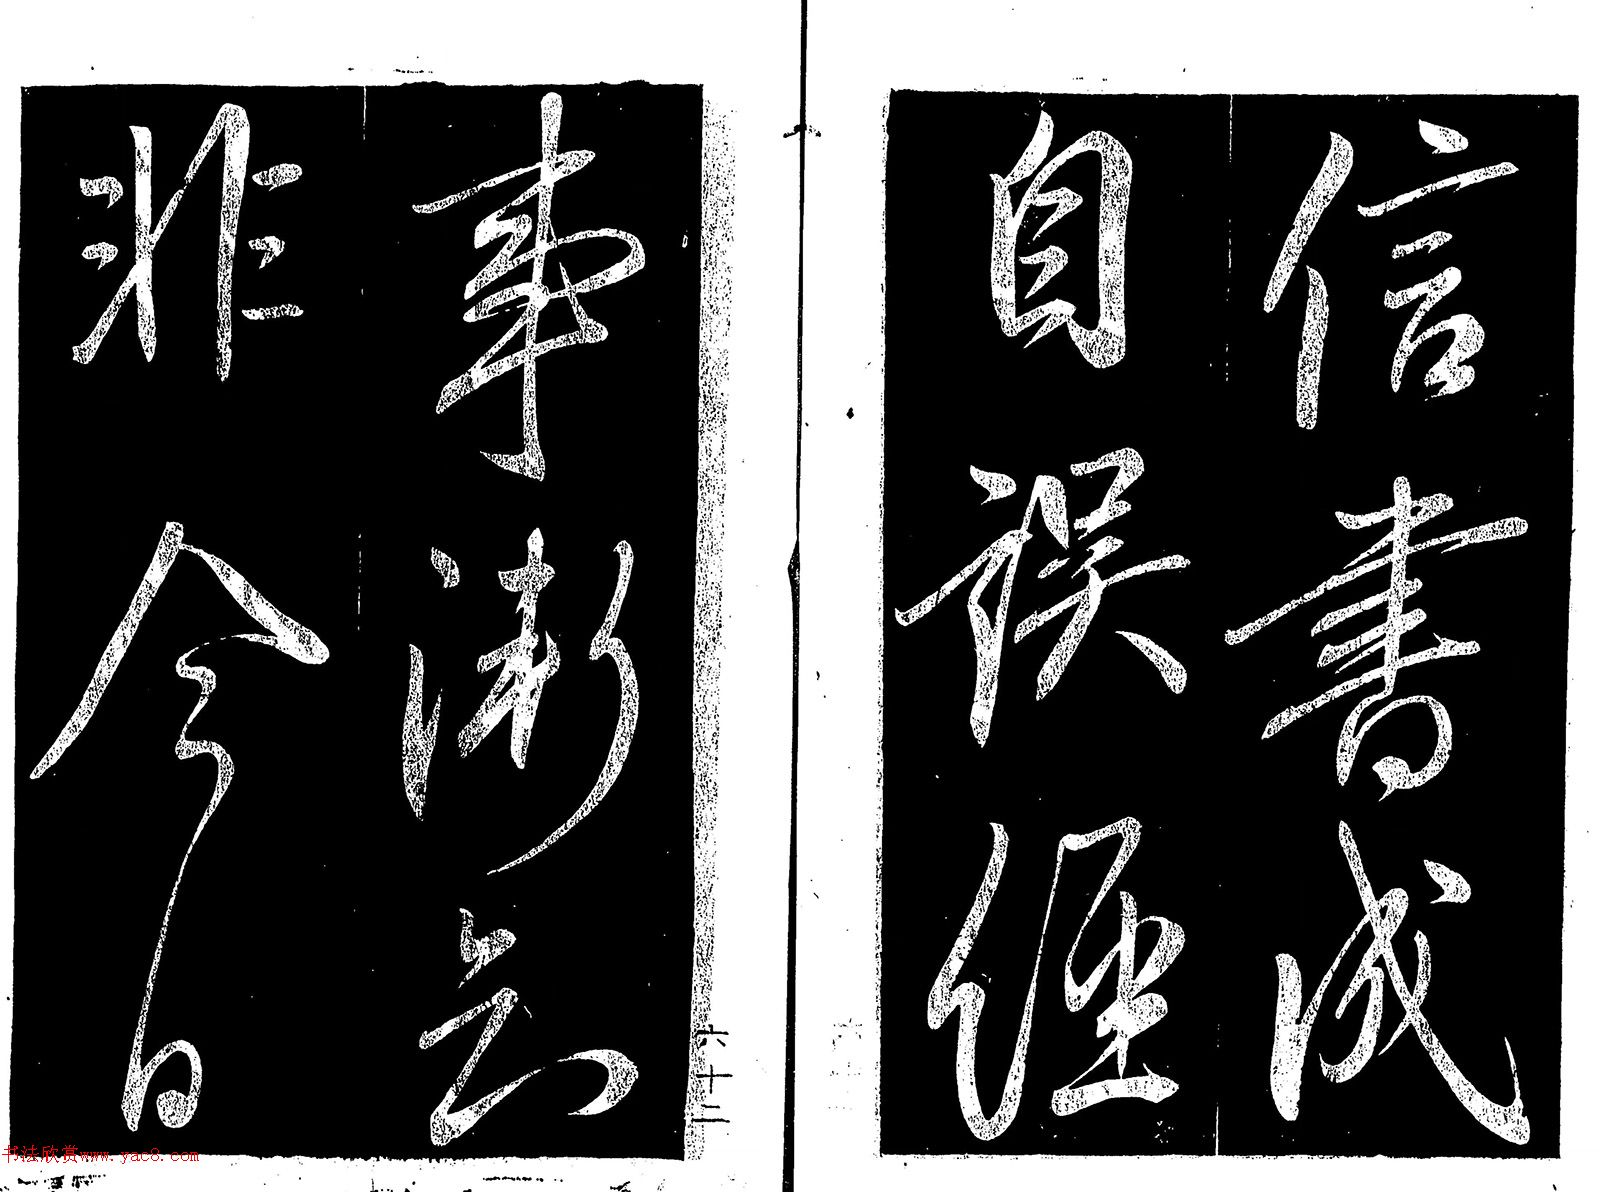 信書成
自誤經
事漸知
非今日
六十三
书法欣赏www.yac8.com